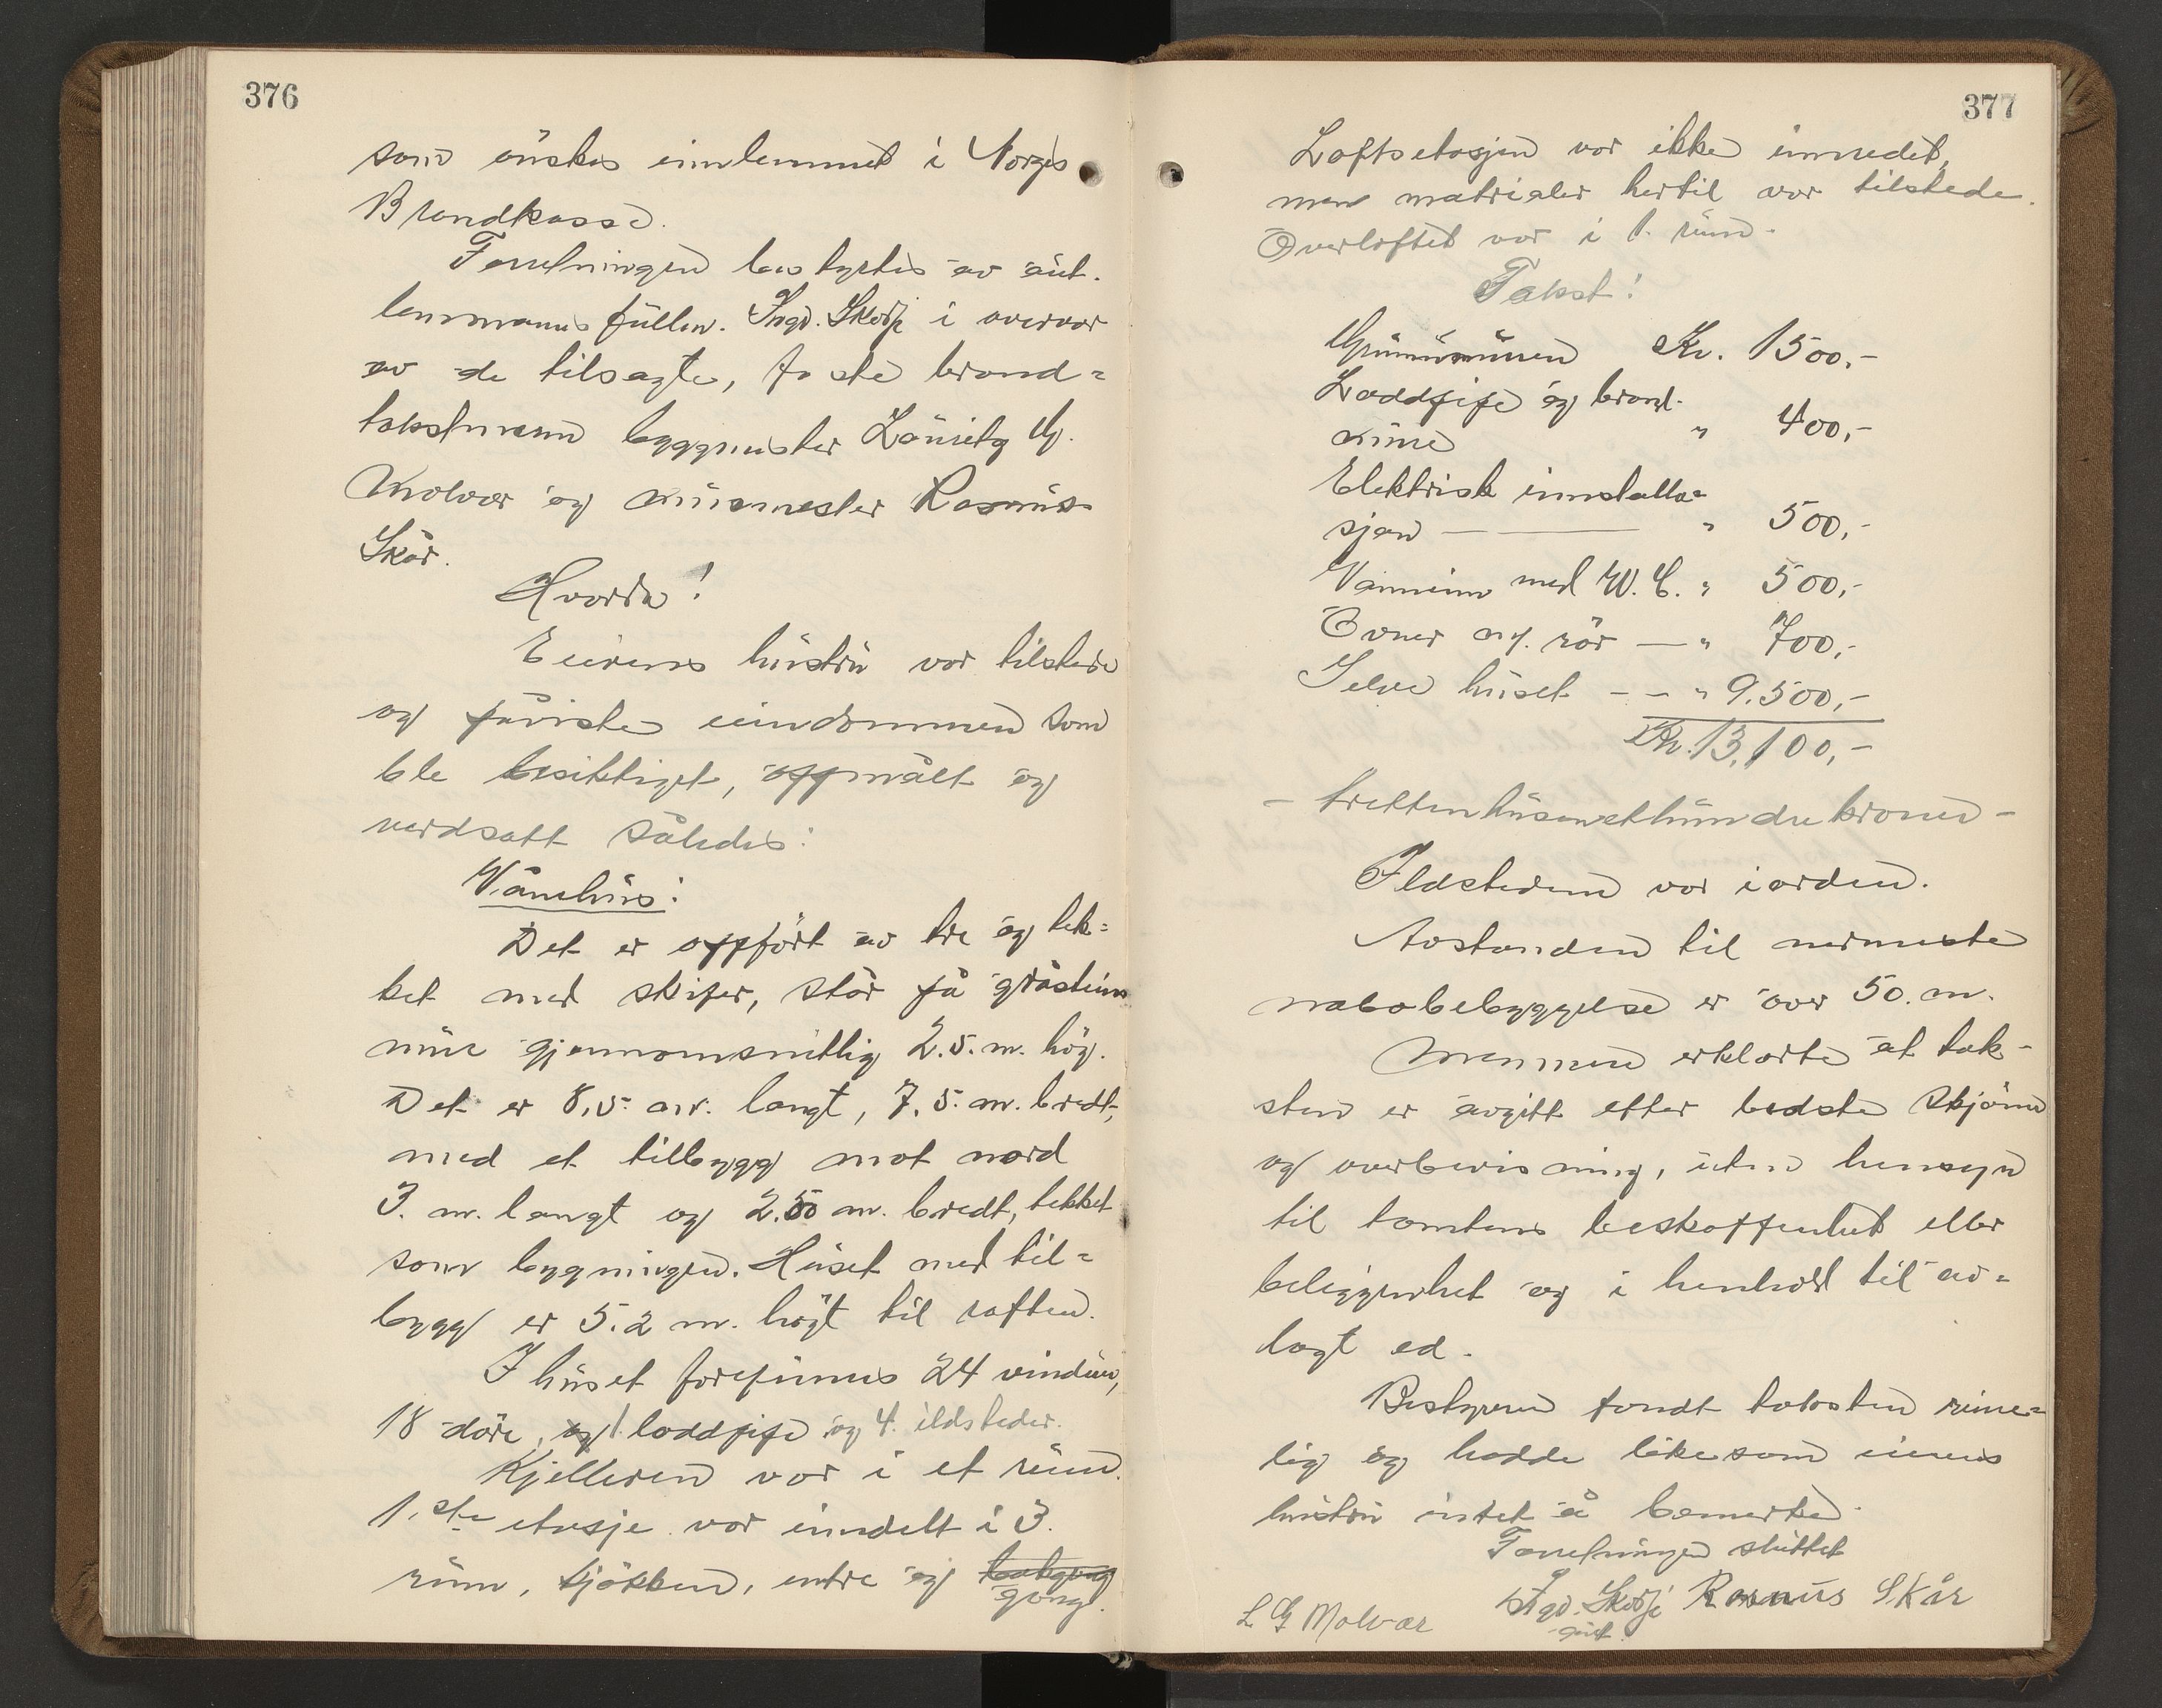 376
som ønskes innlemmet i Norges
Brandkasse.
Forretningen bestyrtes av aut.
lensmannsfullm. Ingv. Skodje i overvær
av de tilsagte, faste brand=
takstmenn byggmester Lauritz G.
Molvær og murmester Rasmus
Skår.
Hvorda!
Eierens hustru var tilstede
og påviste eiendommen som
ble besiktiget, oppmålt og
verdsatt således:
Vånehus:
Det er oppført av tre og tek=
ket med skifer, står på gråsteins
mur gjennomsnittlig 2.5. m. høg.
Det er 8,5. m. langt, 7,5. m. bredt,
med et tilbygg mot nord
3. m. langt og 2.50 m. bredt, tekket
som bygningen. Huset med til=
bygg er 5.2 m. högt til raften.
I huset forefinnes 24 vinduer,
18 döre, og 1. loddpipe og 4. ildsteder.
Kjelleren var i et rum.
1.ste etasje var inndelt i 3.
rum, kjøkken, entre og bakgang
gang.
377
Loftsetasjen var ikke innredet,
men matrialer hertil var tilstede.
Overloftet var i 1. rum.
Takst!
Grunnmuren Kr. 1500,-
Loddpipe og brand-
mure " 400,-
Elektrisk innstalla=
sjon — " 500,-
Vanninnl. med W.C. " 500,-
Ovner m/. rör — " 700,-
Selve huset - - " 9.500,-
Kr. 13,100,-
- trettentusenetthundrekroner -
Ildstederne var i orden.
Avstanden til nærmeste
nabobebyggelse er over 50. m.
Mennene erklærte at tak-
sten er avgitt etter bedste skjönn
og overbevisning, uten hensyn
til tomtens beskaffenhet eller
beliggenhet og i henhold til av=
lagt ed.
Bestyreren fandt taksten rime=
lig og hadde likesom eierens
hustru intet å bemerke.
Forretningen sluttet
L G Molvær Ingv. Skodje Rasmus Skår
aut.